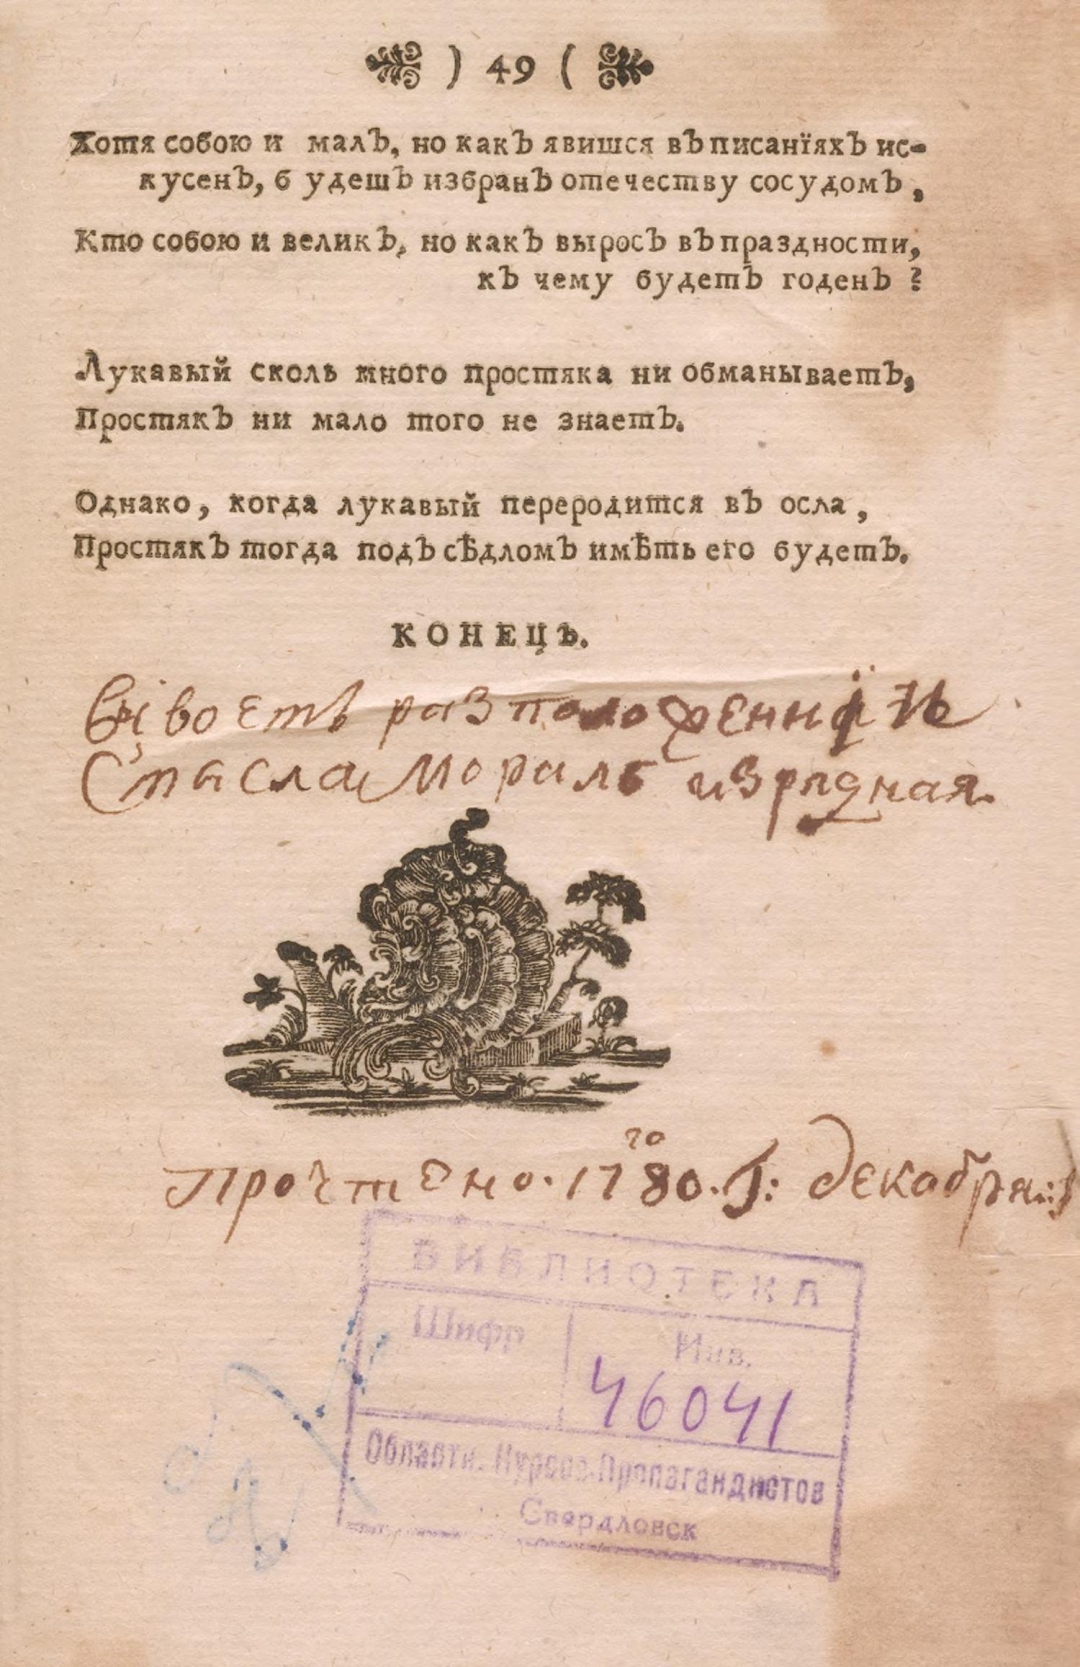 ) 49 (
Хотя собою и малъ, но какъ явишся въ писанїяхъ ис-
кусенъ, будешъ избранъ отечеству сосудомъ,
Кто собою и великъ, но какъ выросъ въ праздности,
къ чему будетъ годенъ?
Лукавый сколь много простяка ни обманываетъ,
Простякъ ни мало того не знаетъ.
Однако, когда лукавый переродится въ осла,
Простякъ тогда подъ сѣдломъ имѣть его будетъ.
КОНЕЦЪ.
разположенний
Смысла мораль изрядная.
Прочтено. 1780.го Г: декабря
БИБЛИОТЕКА
Шифр
Инв.
46041
Областн. Курсов Пропагандистов
Свердловск